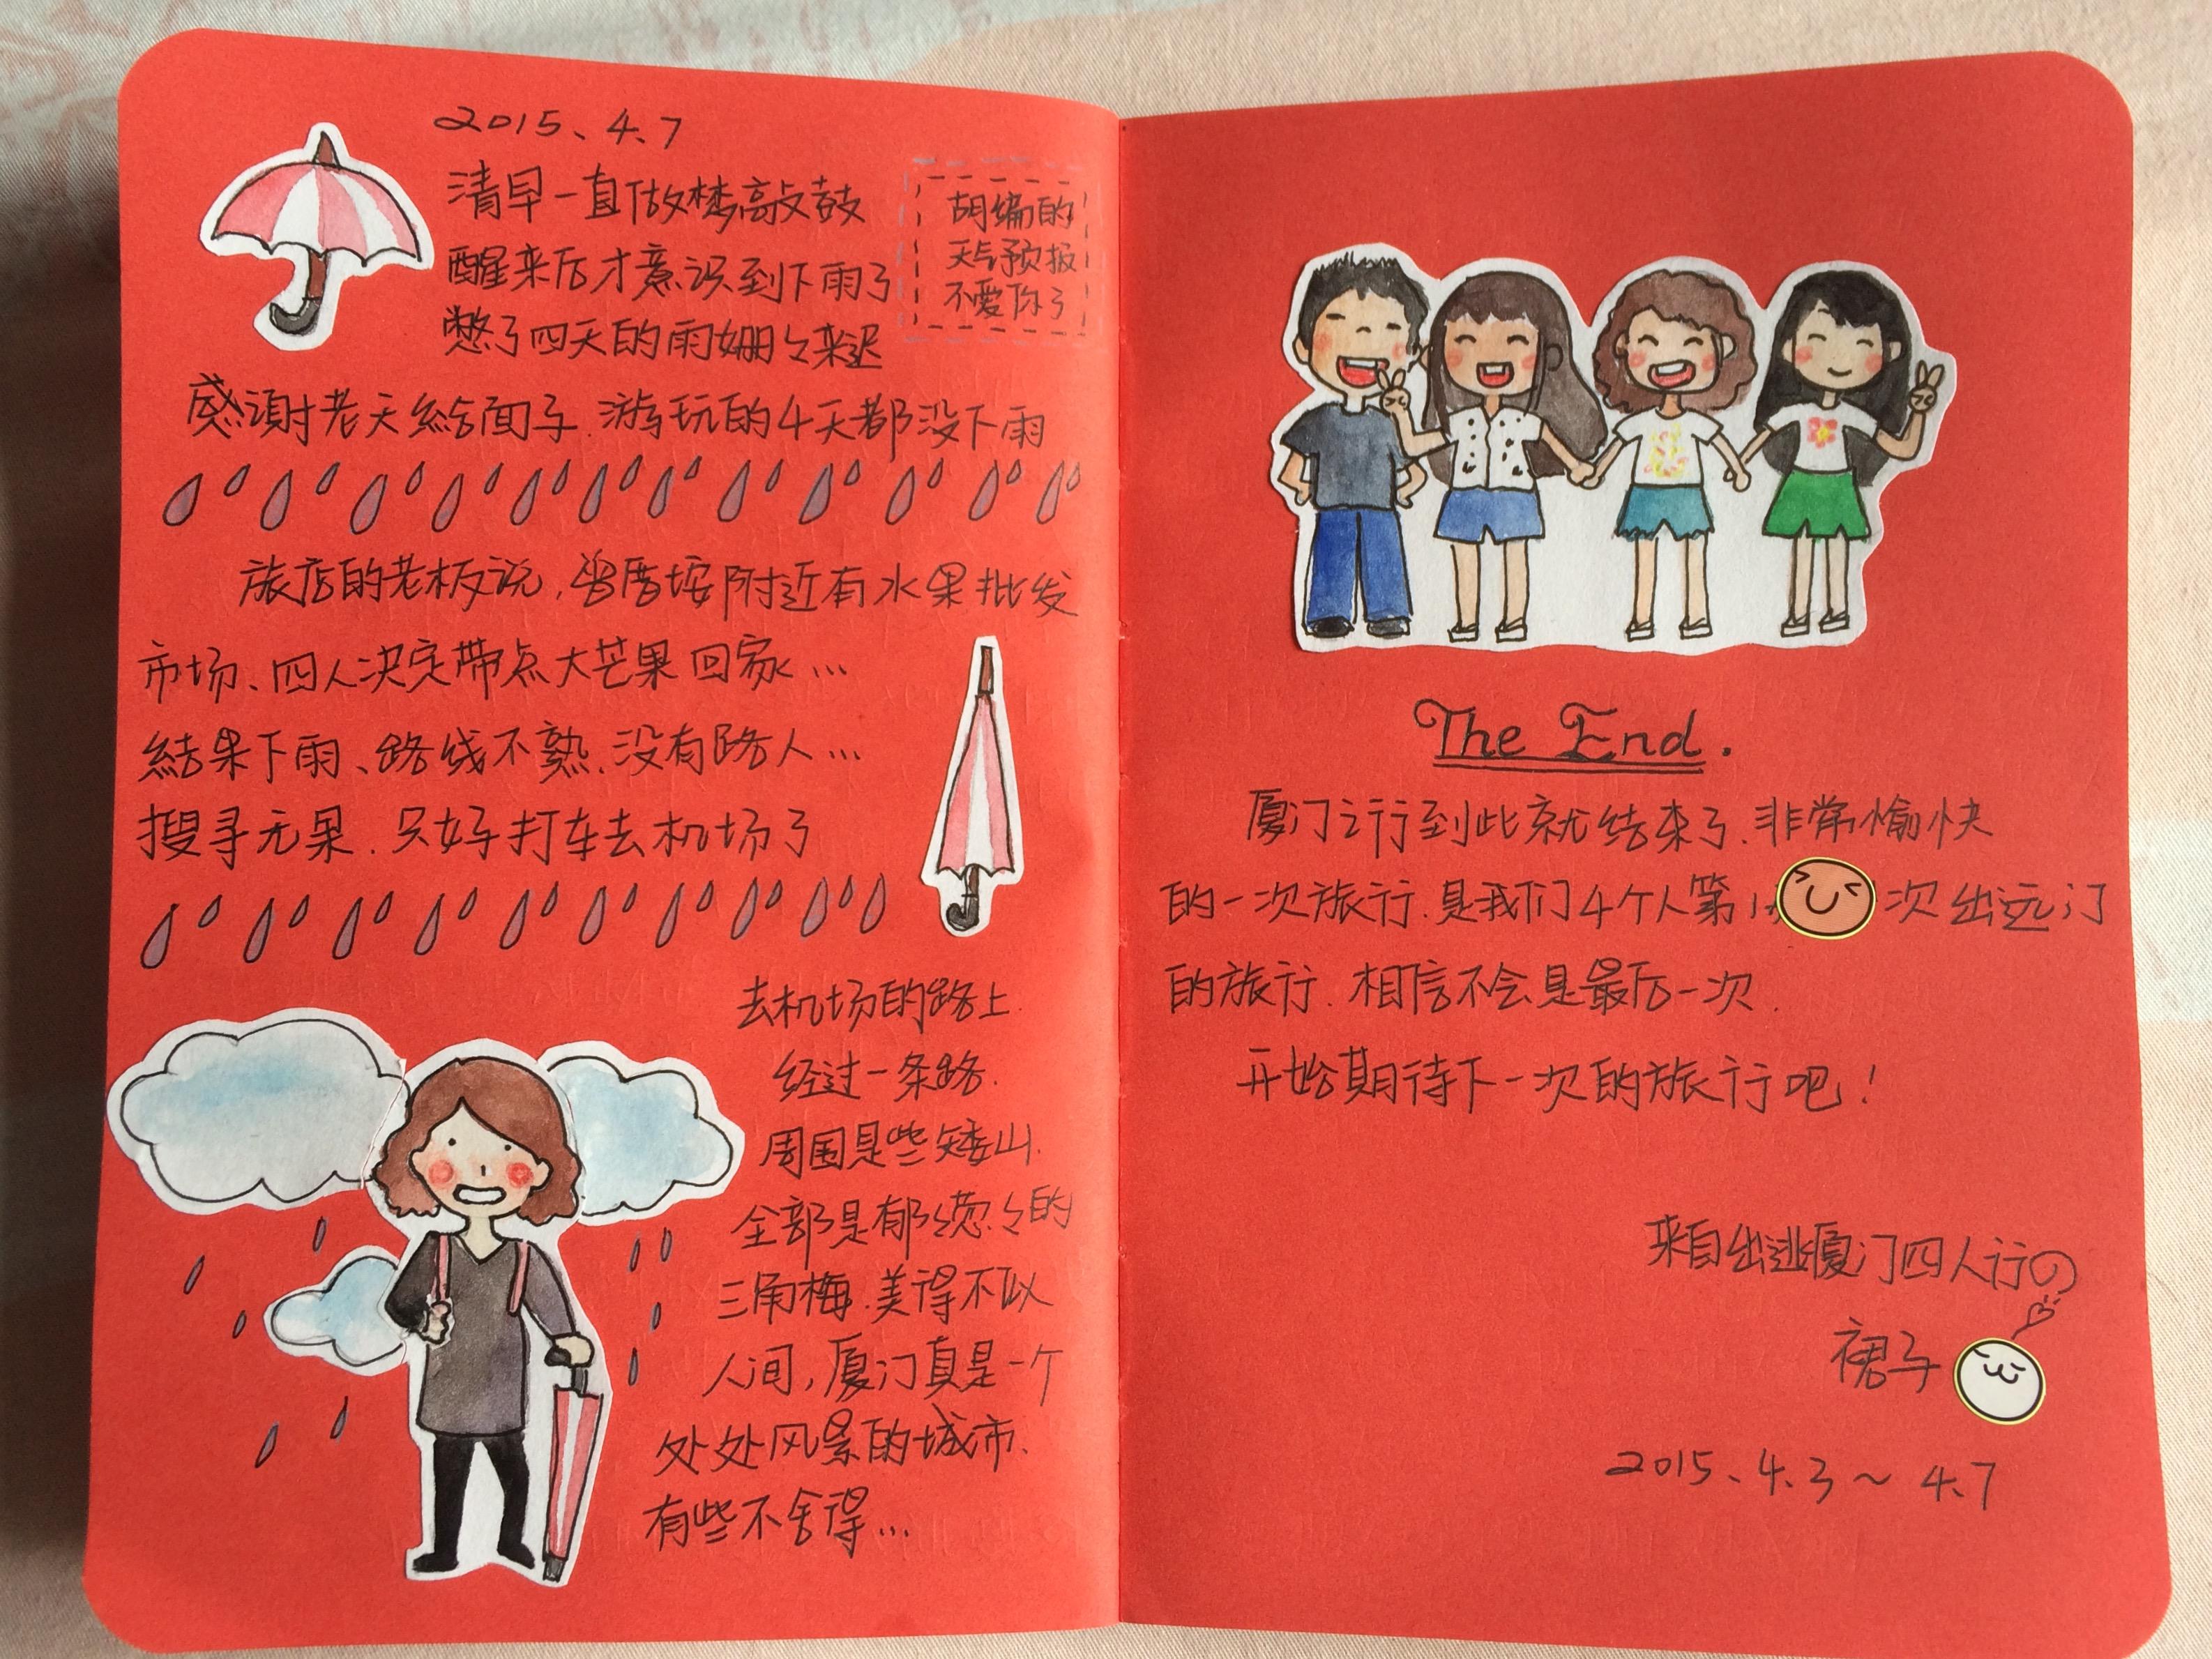 2015、4、7
清早一直做梦敲鼓
醒来后才意识到下雨了
憋了四天的雨姗々来迟
胡编的
天气预报
不爱你了
感謝老天給面子.游玩的4天都没下雨
旅店的老板说,曾厝垵附近有水果批发
市场、四人决定带点大芒果回家…
結果下雨、路线不熟.没有路人…
搜寻无果.只好打车去机场了
去机场的路上.
经过一条路.
周围是些矮山.
全部是郁々葱々的
三角梅.美得不似
人间,厦门真是一个
处处风景的城市.
有些不舍得…
The End.
厦门之行到此就结束了.非常愉快
的一次旅行.是我们4个人第1次出远门
的旅行.相信不会是最后一次.
开始期待下一次的旅行吧!
来自出逃厦门四人行の
裙子
2015、4.3~4.7